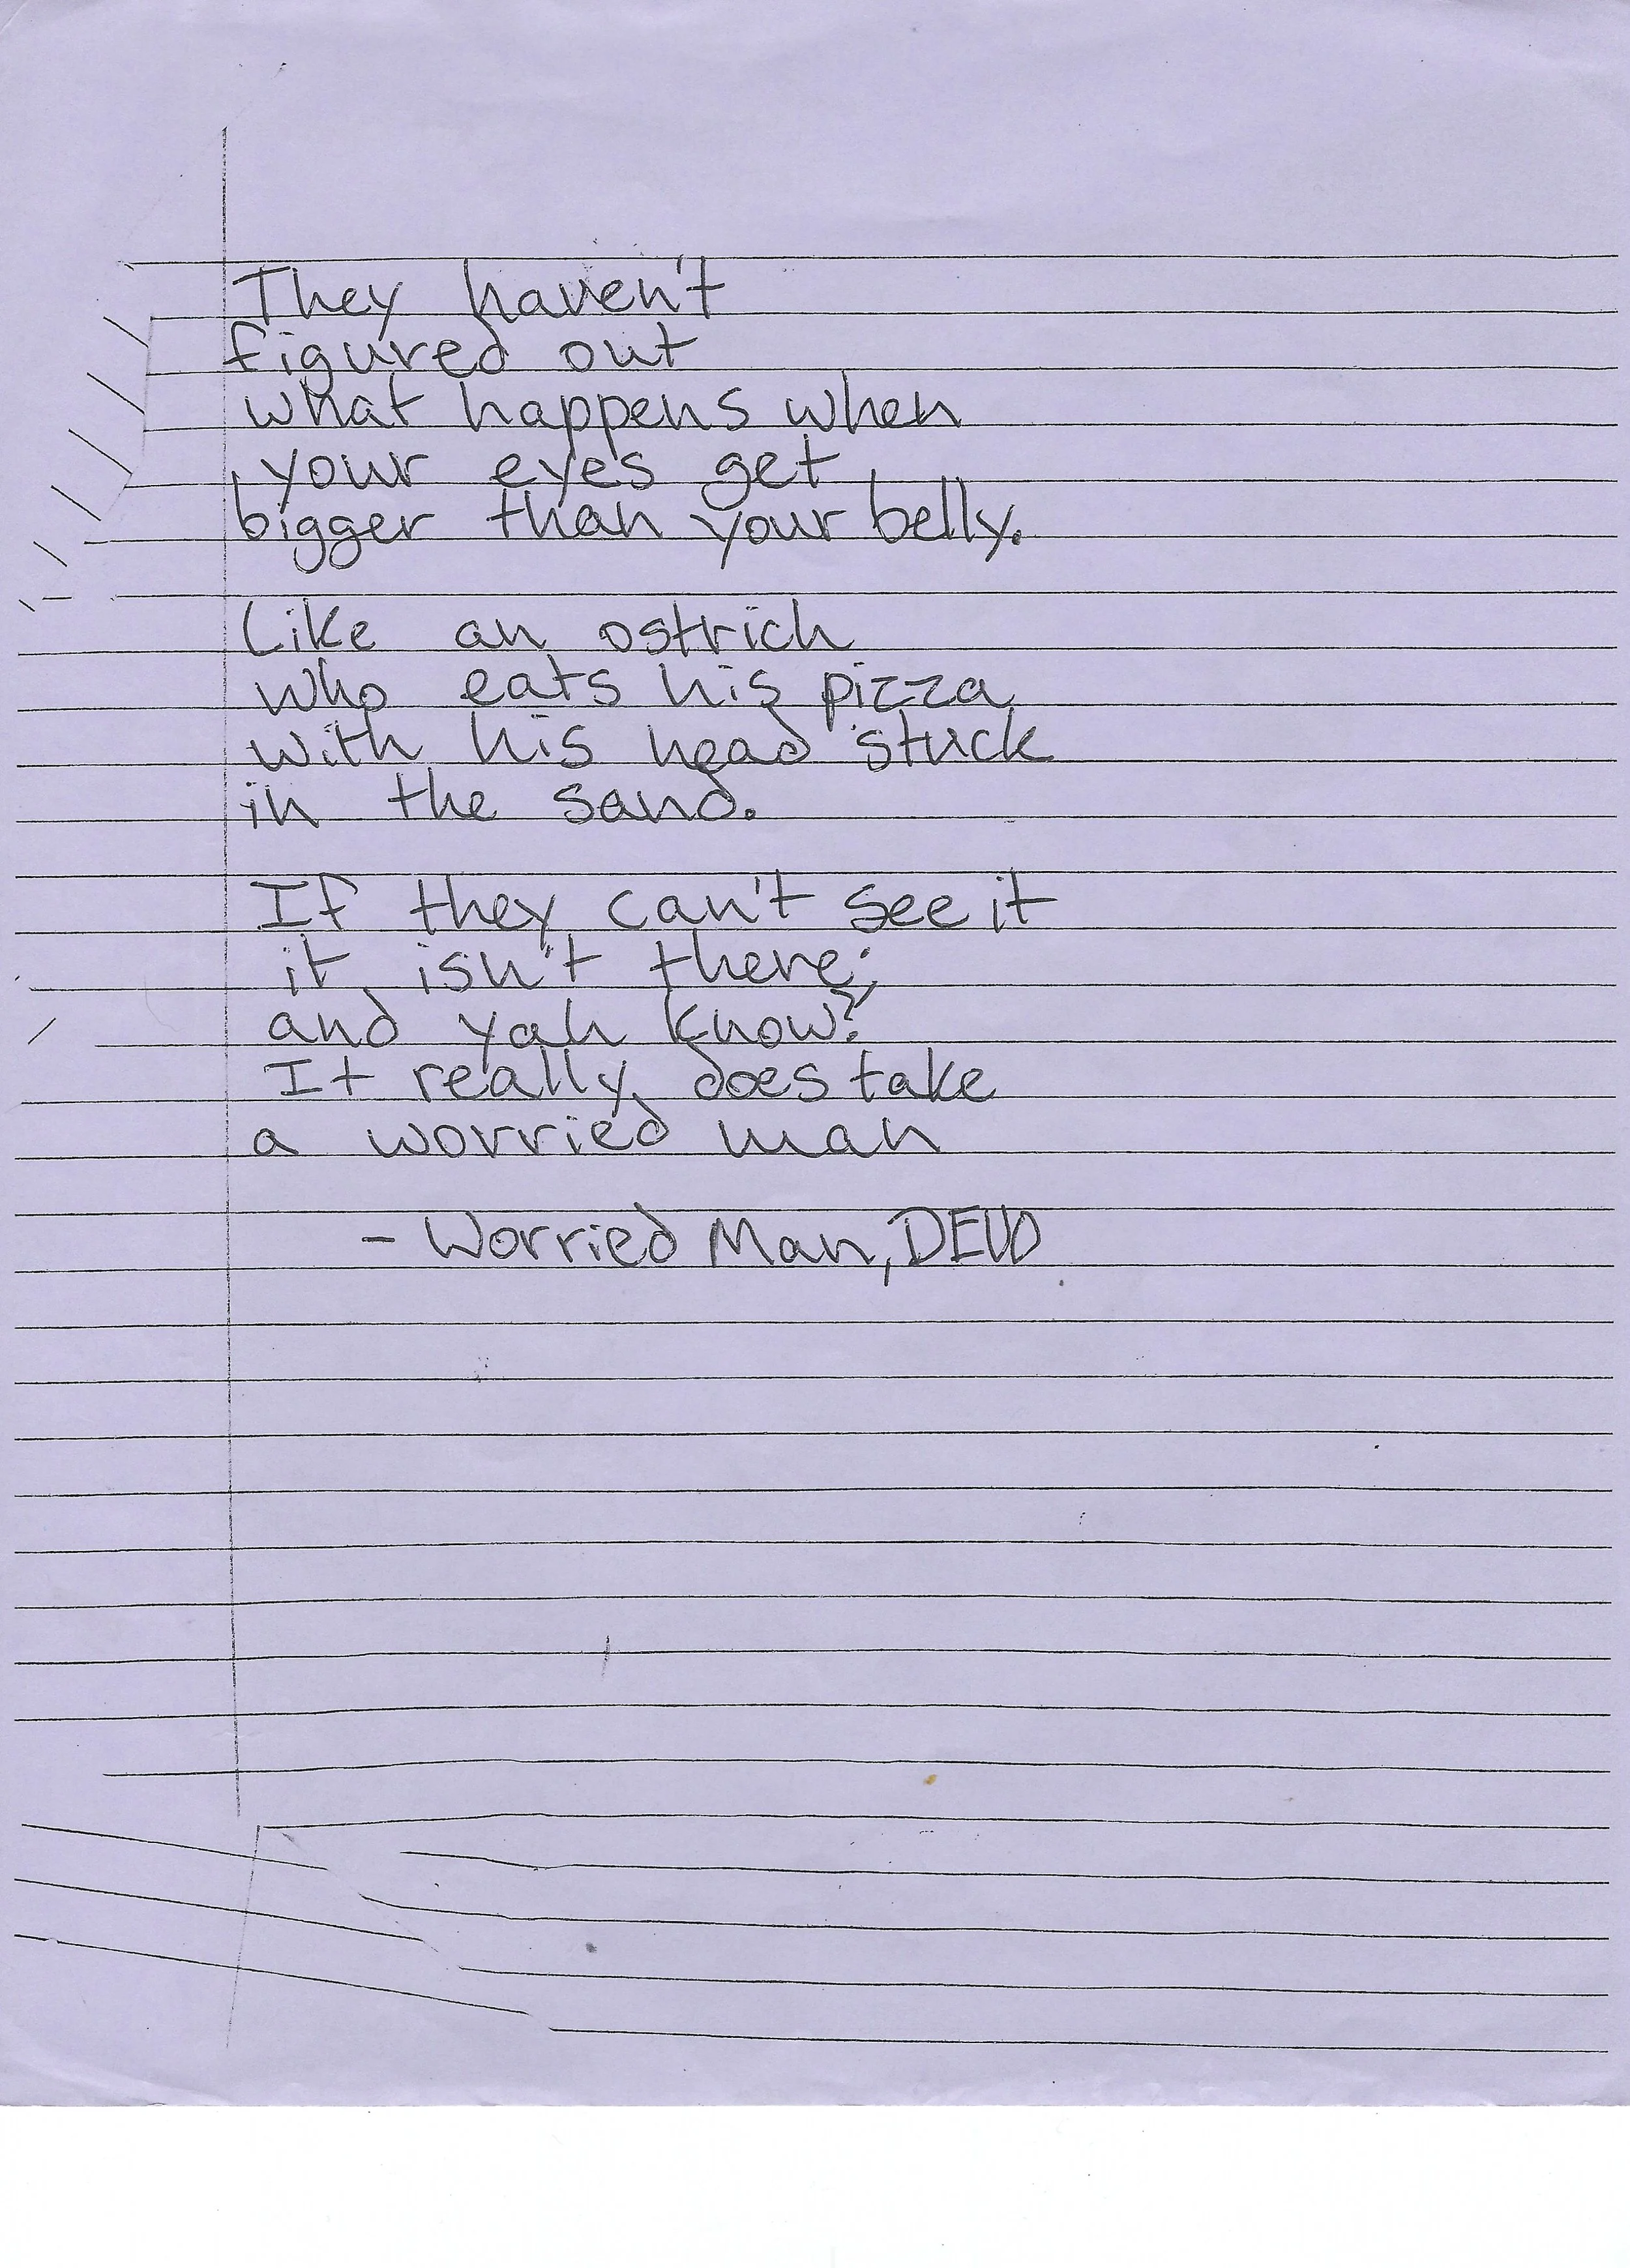 They haven't
figured out
what happens when
your eyes get
bigger than your belly.
Like an ostrich
who eats his pizza
with his head stuck
in the sand.
If they can't see it
it isn't there;
and yah know?
It really does take
a worried man
- Worried Man, DEVO